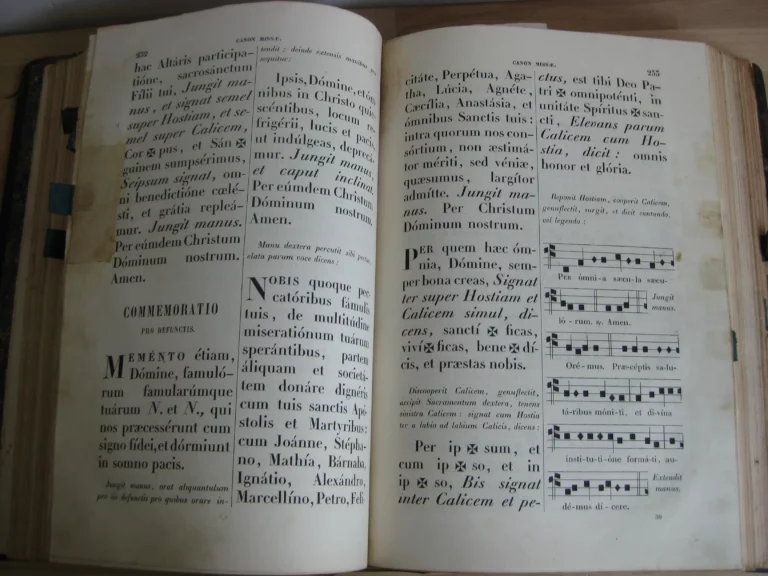 232
CANON MISSÆ.
hac Altáris participa-
tióne, sacrosánctum
Fílii tui, Jungit ma-
nus, et signat semel
super Hostiam, et se-
mel super Calicem,
Cor ✠ pus, et Sán ✠
guinem sumpsérimus,
Seipsum signat, om-
ni benedictióne cœlé-
sti, et grátia repleá-
mur. Jungit manus.
Per eúmdem Christum
Dóminum nostrum.
Amen.
COMMEMORATIO
PRO DEFUNCTIS.
MEMÉNTO étiam,
Dómine, famuló-
rum famularúmque
tuárum N. et N., qui
nos præcessérunt cum
signo fídei, et dórmiunt
in somno pacis.
Jungit manus, orat aliquantulum
pro iis defunctis pro quibus orare in-
tendit : deinde extensis manibus
sequitur:
Ipsis, Dómine, et óm
nibus in Christo quie
scéntibus, locum re
frigérii, lucis et pacis,
ut indúlgeas, depreca
mur. Jungit manus,
et caput inclinat.
Per eúmdem Christum
Dóminum nostrum.
Amen.
Manu dextera percutit sibi pectus,
elata parum voce dicens :
NOBIS quoque pec-
catóribus fámulis
tuis, de multitúdine
miseratiónum tuárum
sperántibus, partem
áliquam et societá-
tem donáre dignéris
cum tuis sanctis Apó
stolis et Martyribus:
cum Joánne, Stépha-
no, Mathía, Bárnaba,
Ignátio, Alexándro,
Marcellíno, Petro, Feli-
CANON MISSÆ.
233
citáte, Perpétua, Aga-
tha, Lúcia, Agnéte,
Cæcília, Anastásia, et
ómnibus Sanctis tuis:
intra quorum nos con-
sórtium, non æstimá-
tor mériti, sed véniæ,
quæsumus, largítor
admítte. Jungit ma-
nus. Per Christum
Dóminum nostrum.
PER quem hæc óm-
nia, Dómine, sem-
per bona creas, Signat
ter super Hostiam et
Calicem simul, di-
cens, sanctí ✠ ficas,
viví ✠ ficas, bene ✠ dí-
cis, et præstas nobis.
Discooperit Calicem, genuflectit,
accipit Sacramentum dextera, tenens
sinistra Calicem : signat cum Hostia
ter a labio ad labium Calicis, dicens :
Per ip ✠ sum, et
cum ip ✠ so, et in
ip ✠ so, Bis signat
inter Calicem et pe-
ctus, est tibi Deo Pa-
tri ✠ omnipoténti, in
unitáte Spíritus ✠ san-
cti, Elevans parum
Calicem cum Ho-
stia, dicit : omnis
honor et glória.
Reponit Hostiam, cooperit Calicem,
genuflectit, surgit, et dicit cantando,
vel legendo :
PER ómni-a sæcu-la sæcu-
Jungit
manus.
ló - rum. ℟. Amen.
Oré-mus. Præcéptis salu-
tá-ribus móni-ti, et diví-na
insti-tu-ti-óne formá-ti, au-
Extendit
manus.
dé-mus dí-cere.
30